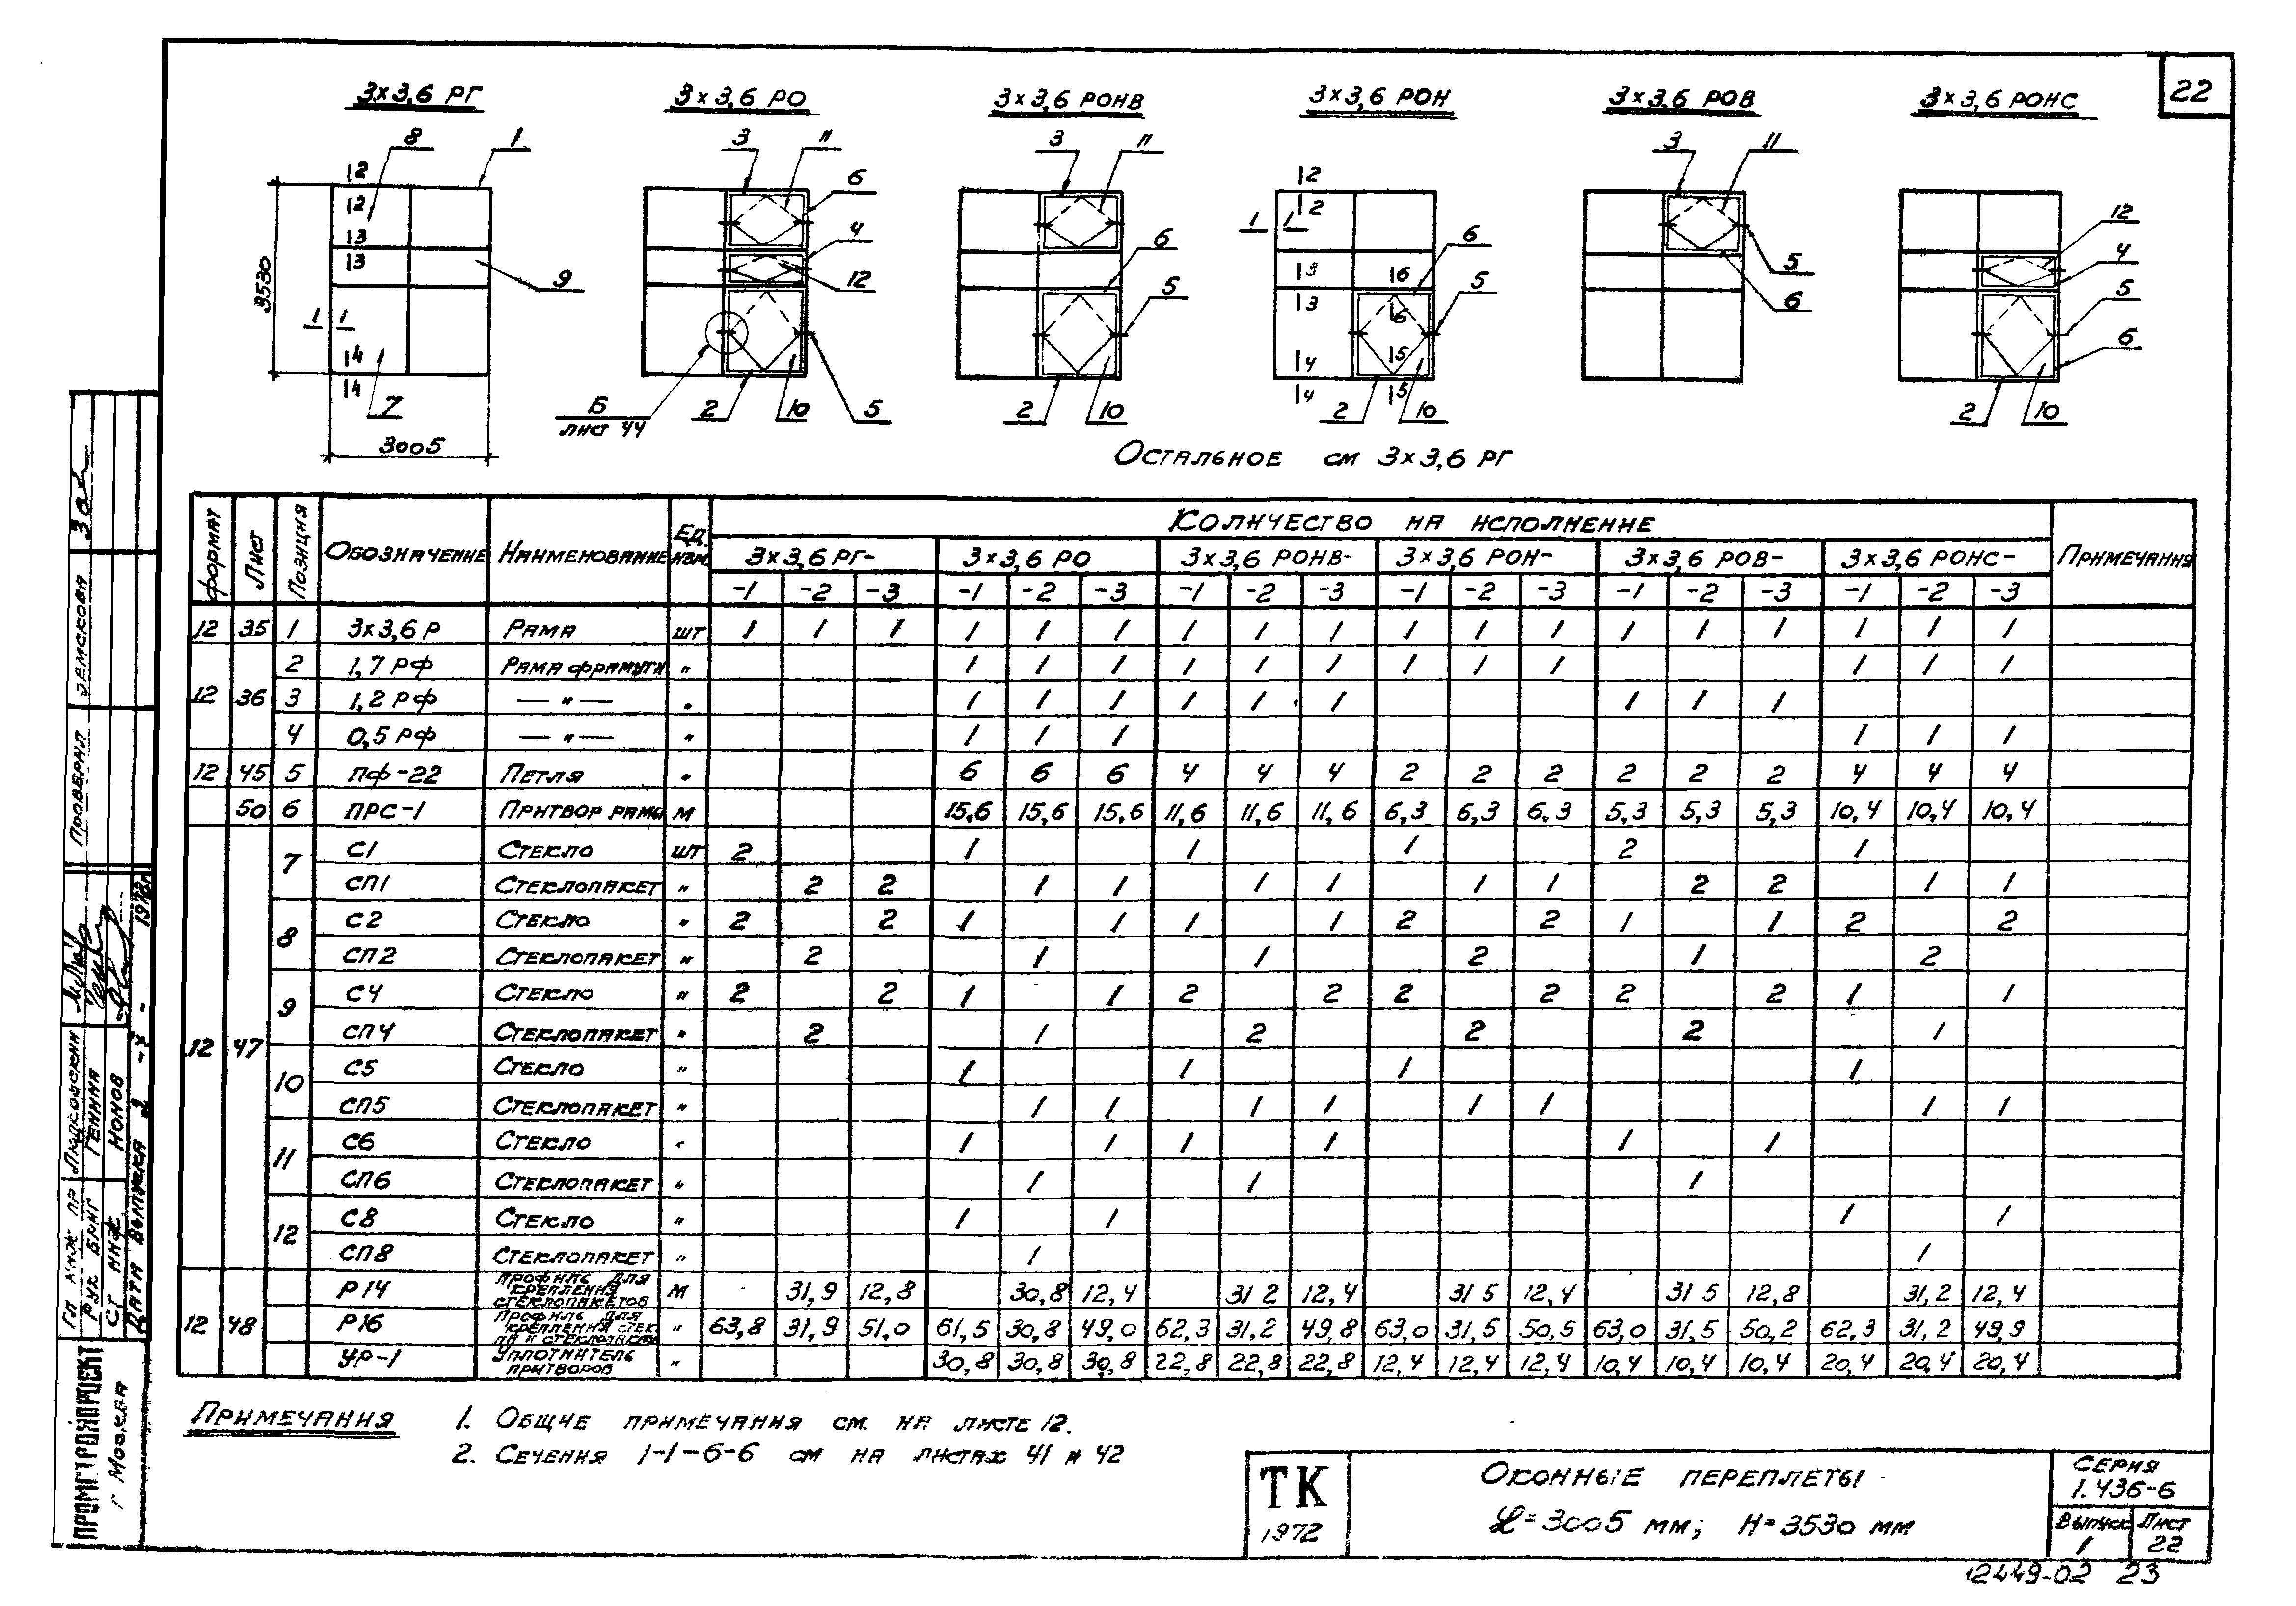 22
3×3,6 РГ
3×3,6 РО
3×3,6 РОНВ
3×3,6 РОН
3×3,6 РОВ
3×3,6 РОНС
8 1 12 12 13 13 9 1 1 14 14 7 3530 3005
3 11 6 4 12 2 10 5
Б
лист 44
3 11 6 5 2 10
12 12 1 1 13 13 16 16 6 5 14 14 15 15 2 10
3 11 5 6
12 4 5 6 2 10
Остальное см 3×3,6 РГ
Формат Лист Позиция Обозначение Наименование Ед. изм. Количество на исполнение Примечания
3×3,6 РГ- 3×3,6 РО 3×3,6 РОНВ- 3×3,6 РОН- 3×3,6 РОВ- 3×3,6 РОНС-
-1 -2 -3 -1 -2 -3 -1 -2 -3 -1 -2 -3 -1 -2 -3 -1 -2 -3
12 35 1 3×3,6 Р Рама шт 1 1 1 1 1 1 1 1 1 1 1 1 1 1 1 1 1 1
2 1,7 РФ Рама фрамуги " 1 1 1 1 1 1 1 1 1 1 1 1
12 36 3 1,2 РФ — " — " 1 1 1 1 1 1 1 1 1
4 0,5 РФ — " — " 1 1 1 1 1 1
12 45 5 ПФ-22 Петля " 6 6 6 4 4 4 2 2 2 2 2 2 4 4 4
50 6 ПРС-1 Притвор рамы м 15,6 15,6 15,6 11,6 11,6 11,6 6,3 6,3 6,3 5,3 5,3 5,3 10,4 10,4 10,4
7 С1 Стекло шт 2 1 1 1 2 1
СП1 Стеклопакет " 2 2 1 1 1 1 1 1 2 2 1 1
8 С2 Стекло " 2 2 1 1 1 1 2 2 1 1 2 2
СП2 Стеклопакет " 2 1 1 2 1 2
9 С4 Стекло " 2 2 1 1 2 2 2 2 2 2 1 1
12 47 СП4 Стеклопакет " 2 1 2 2 2 1
10 С5 Стекло " 1 1 1 1
СП5 Стеклопакет " 1 1 1 1 1 1 1 1
11 С6 Стекло " 1 1 1 1 1 1
СП6 Стеклопакет " 1 1 1
12 С8 Стекло " 1 1 1 1
СП8 Стеклопакет " 1 1
Р14 Профиль для крепления стеклопакетов м - 31,9 12,8 30,8 12,4 31 2 12,4 31 5 12,4 31 5 12,8 31,2 12,4
12 48 Р16 Профиль для крепления стекла и стеклопакета " 63,8 31,9 51,0 61,5 30,8 49,0 62,3 31,2 49,8 63,0 31,5 50,5 63,0 31,5 50,2 62,3 31,2 49,9
УР-1 Уплотнитель притворов " 30,8 30,8 30,8 22,8 22,8 22,8 12,4 12,4 12,4 10,4 10,4 10,4 20,4 20,4 20,4
Примечания 1. Общие примечания см. на листе 12.
2. Сечения 1-1-6-6 см на листах 41 и 42
ТК
1972
Оконные переплеты
L=3005 мм; H=3530 мм
Серия
1.436-6
Выпуск Лист
1 22
12449-02 23
Проверил Земскова
Гл инж пр Людковский
Рук бриг Генина
Ст инж Нонов
Дата выпуска
1972г
ПРОМСТРОЙПРОЕКТ
г Москва